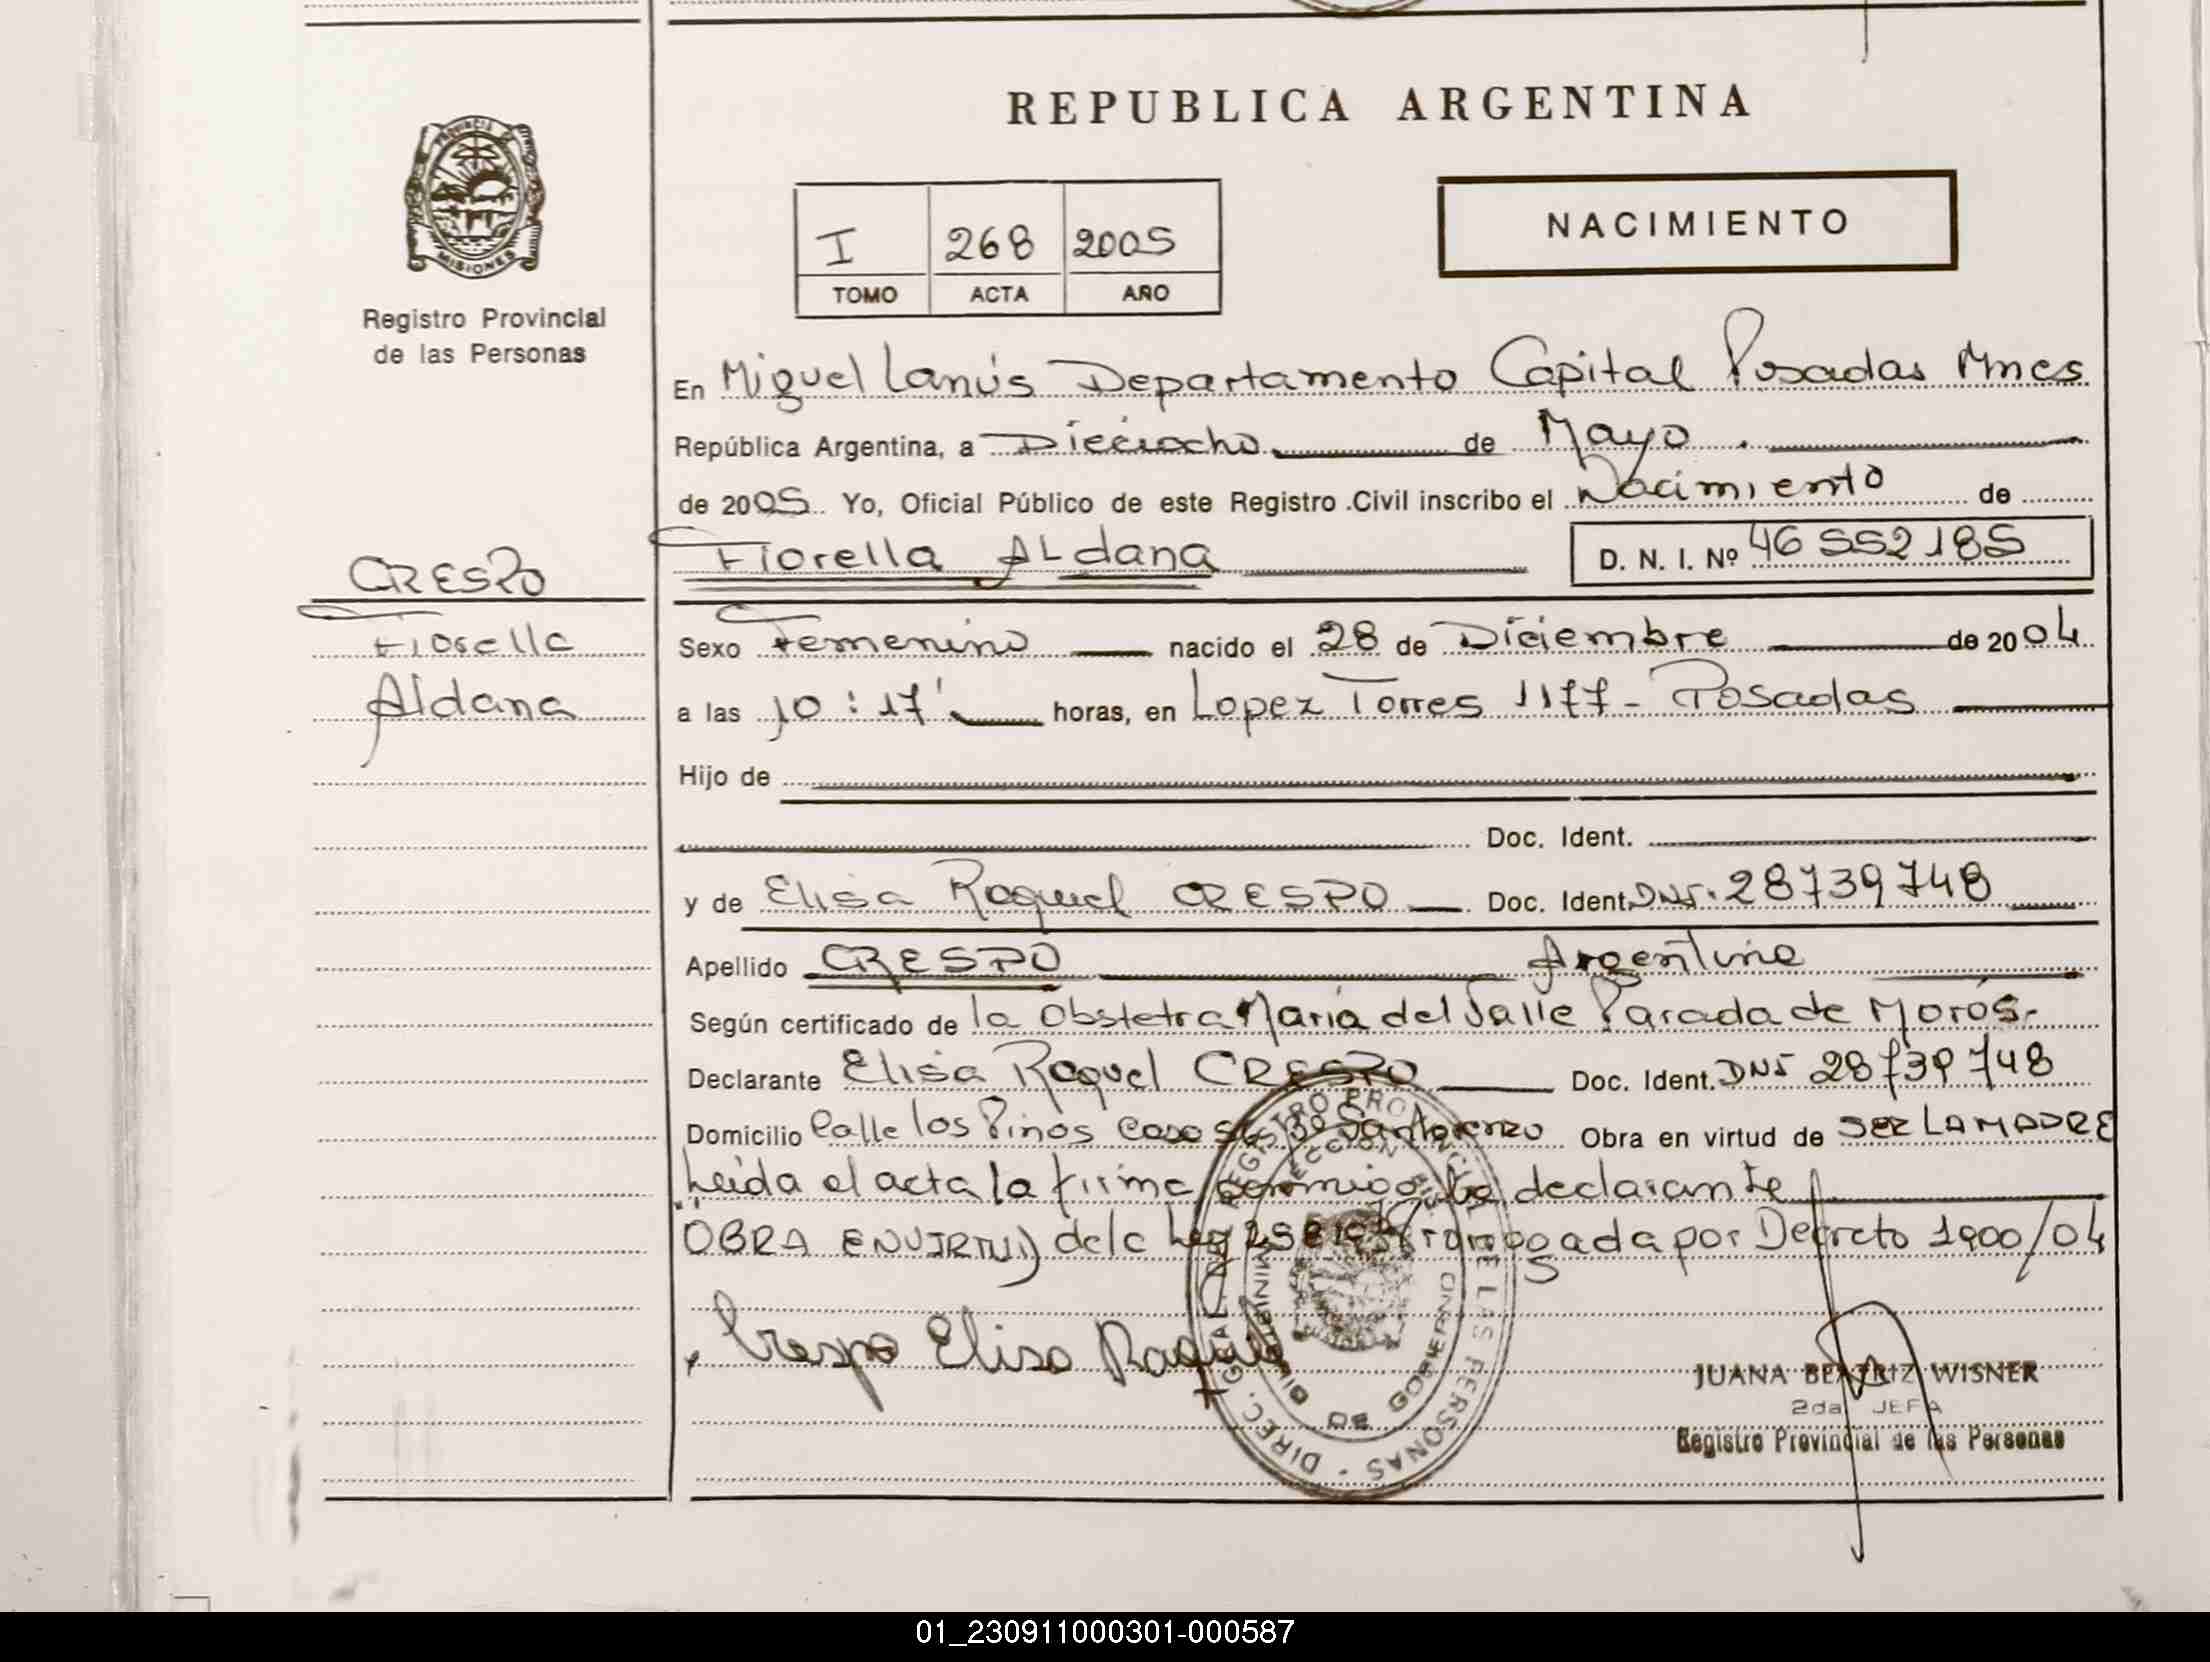 REPUBLICA ARGENTINA
PROVINCIA DE
MISIONES
Registro Provincial
de las Personas
NACIMIENTO
I 268 2005
TOMO ACTA AÑO
En Miguel Lanús Departamento Capital Posadas Mnes
República Argentina, a Dieciocho de Mayo
de 2005 Yo, Oficial Público de este Registro Civil inscribo el Nacimiento de
Fiorella Aldana D. N. I. Nº 46552185
CRESPO
Fiorella
Aldana
Sexo Femenino nacido el 28 de Diciembre de 2004
a las 10:17' horas, en Lopez Torres 1177 - Posadas
Hijo de
Doc. Ident.
y de Elisa Raquel CRESPO Doc. Ident. DNI. 28739748
Apellido CRESPO Argentina
Según certificado de la Obstetra Maria del Valle Parada de Morós.
Declarante Elisa Raquel CRESPO Doc. Ident. DNI 28739748
Domicilio Calle los Pinos Casa Obra en virtud de SER LA MADRE
Leida el acta la firma conmigo la declarante
OBRA EN VIRTUD de la Ley Prorrogada por Decreto 1900/04
Crespo Elisa Raquel
DIREC. GRAL. DEL REGISTRO PROVINCIAL DE LAS PERSONAS
MINISTERIO DE GOBIERNO
JUANA BEATRIZ WISNER
2da JEFA
Registro Provincial de las Personas
01_230911000301-000587